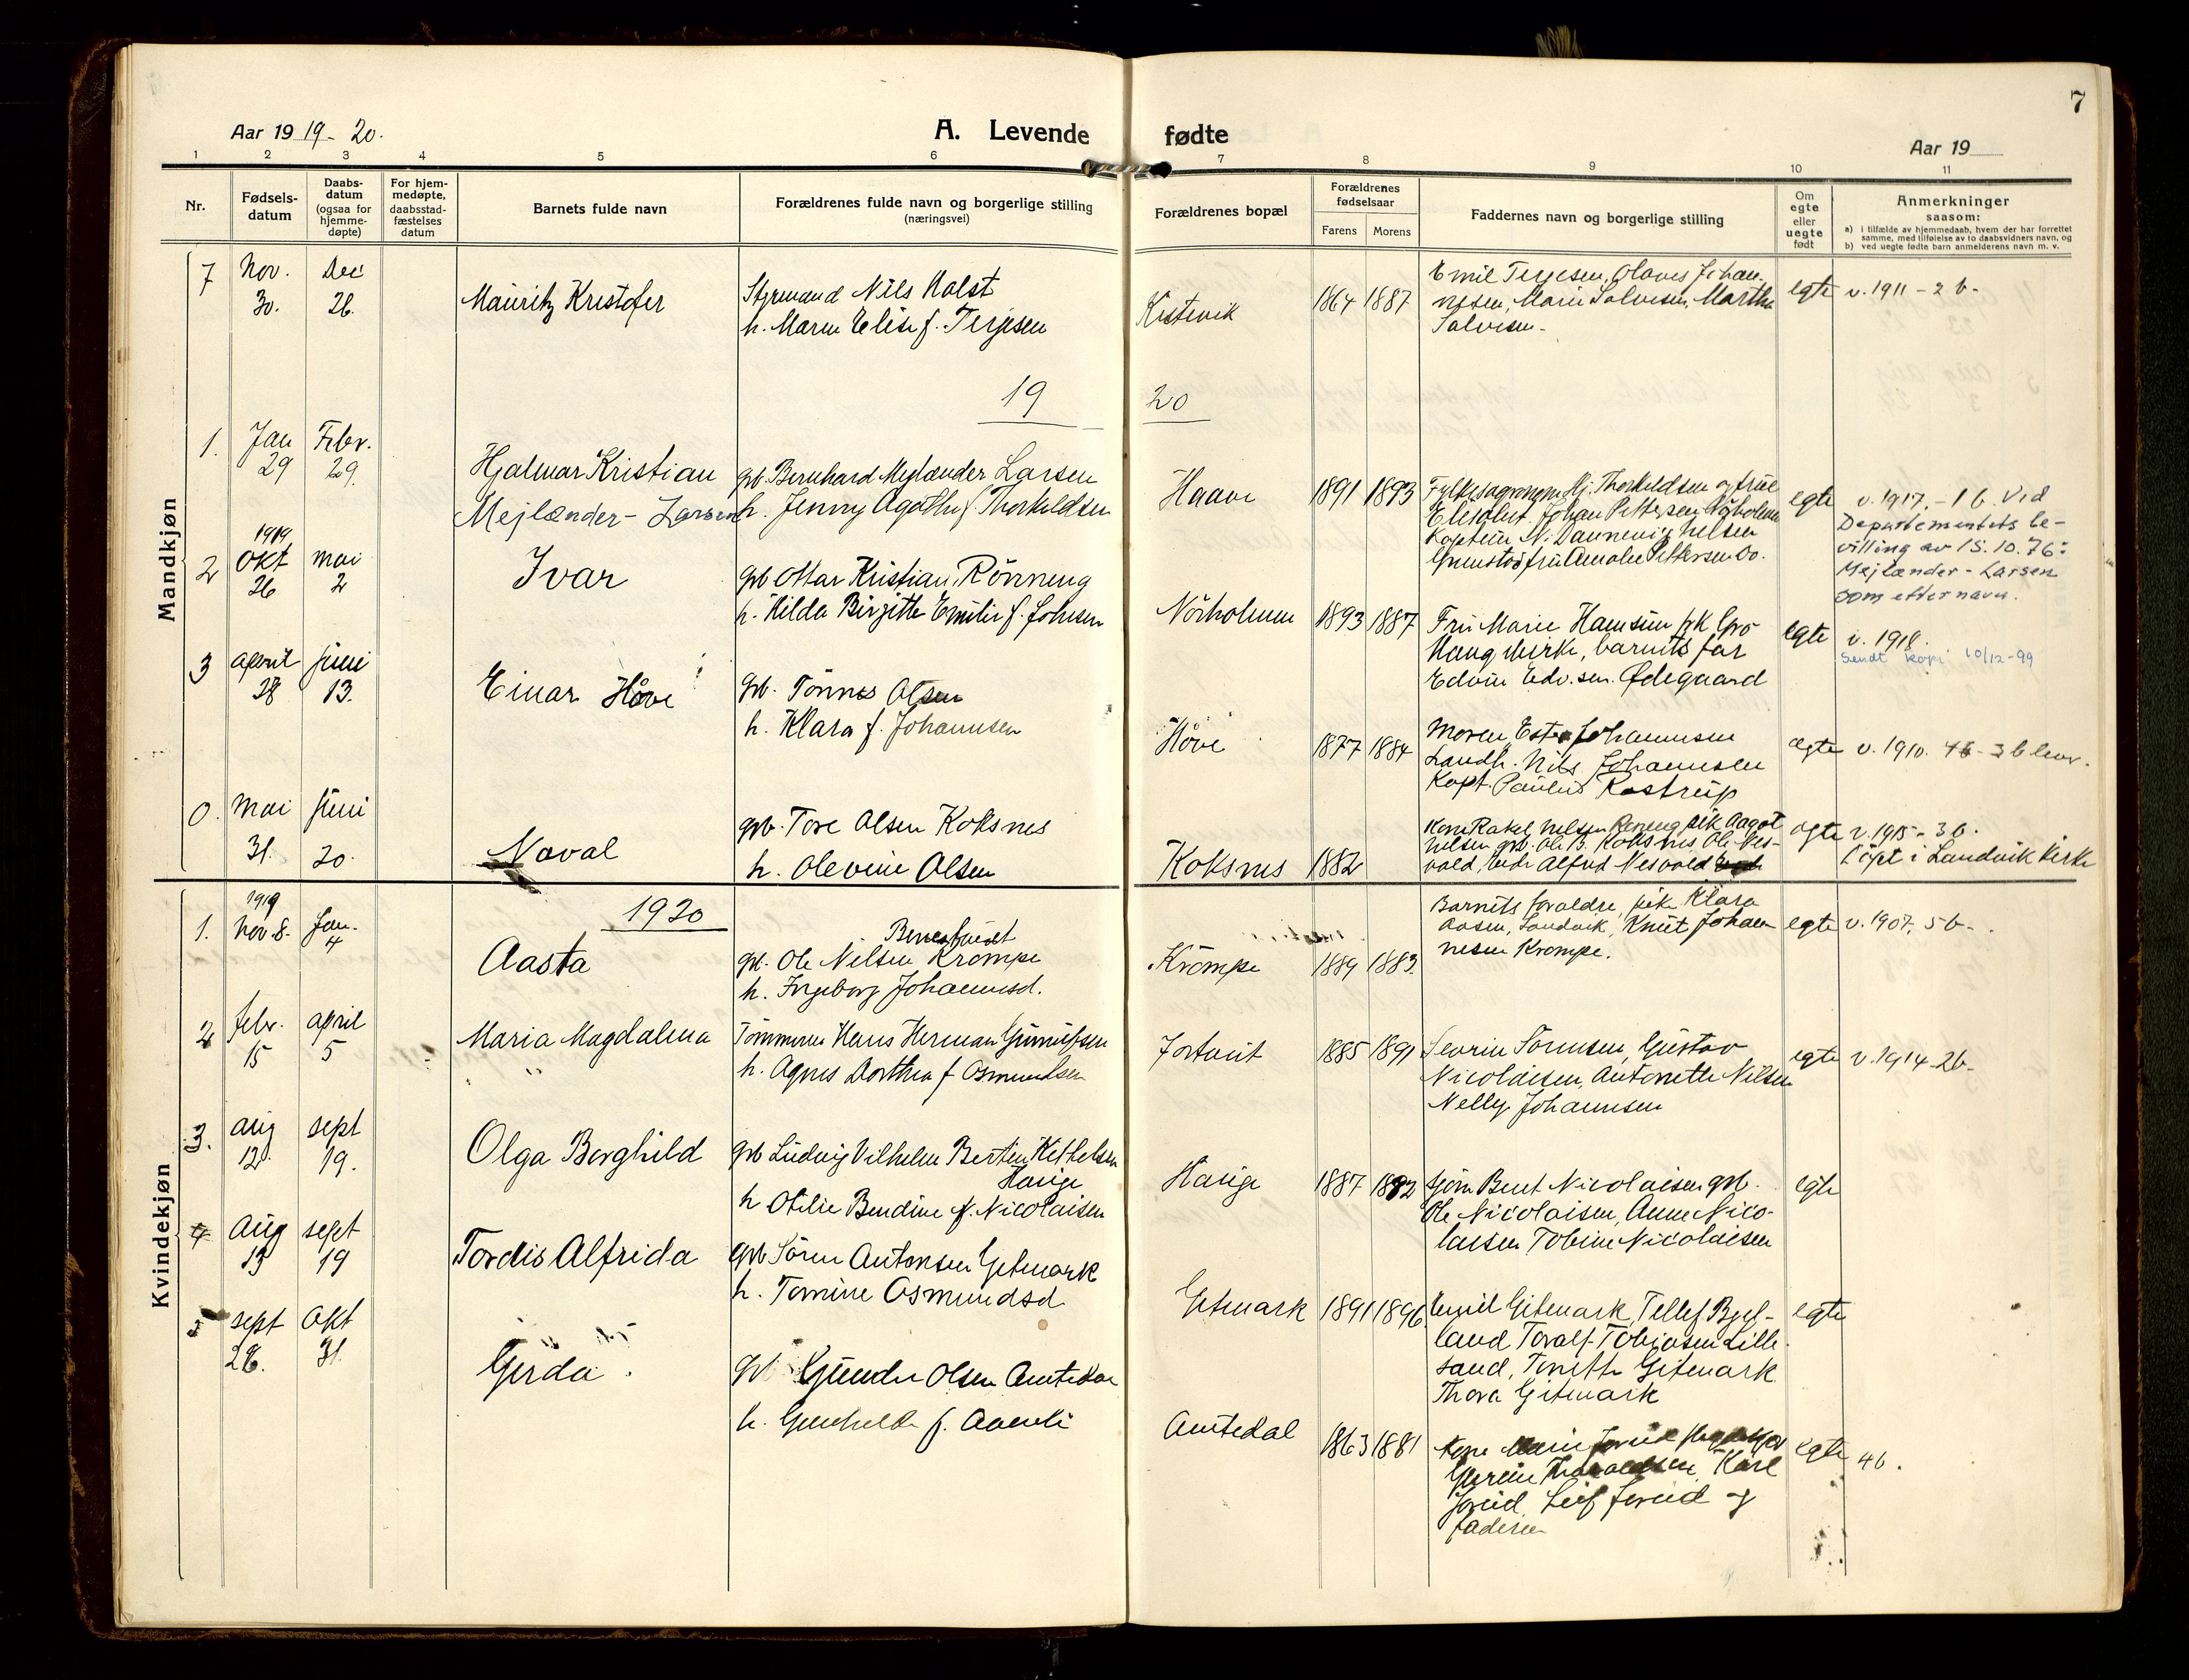 7
Aar 19 19-20.
A. Levende fødte
Aar 19
1 2 3 4 5 6 7 8 9 10 11
Nr.
Fødsels-
datum
Daabs-
datum
(ogsaa for
hjemme-
døpte)
For hjem-
medøpte,
daabsstad-
fæstelses
datum
Barnets fulde navn
Forældrenes fulde navn og borgerlige stilling
(næringsvei)
Forældrenes bopæl
Forældrenes
fødselsaar
Farens Morens
Faddernes navn og borgerlige stilling
Om
egte
eller
uegte
født
Anmerkninger
saasom:
a) i tilfælde av hjemmedaab, hvem der har forrettet
samme, med tilføielse av to daabsvidners navn, og
b) ved uegte fødte barn anmelderens navn m. v.
Mandkjøn
7 Nov. 30. Dec 26.
Mauritz Kristofer
Styrmand Nils Holst
h. Maren Elise f. Terjesen
Kistevik
1864 1887
Emil Terjesen, Olaves Johan-
nesen, Marie Salvesen, Martha
Salvesen-
egte
v. 1911 - 2 b-
19 20
1. Jan 29 Febr. 29.
Hjalmar Kristian
Mejlænder- Larsen
gb. Bernhard Mejlænder Larsen
h. Jenny Agathe f. Thorkildsen
Haave
1891 1893
Fylkesagronom Hj. Thorkildsen og frue
Elisabet, Johan Pettersen
Kaptein N. Dannevig Nielsen
Grimstad fru Amalie Pettersen do.
egte
v. 1917. - 1 b. Ved
Departementets be-
villing av 15.10.76:
Mejlænder - Larsen
som etternavn.
2 1919 Okt 26 Mai 2
Ivar
gb Ottar Kristian Rönneng
h. Hilda Birgitte Emilie f. Johnsen
Nörholmen
1893 1887
Fru Marie Hamsun pk Gro
Haugmirke, barnets far
Edvin Edv.sen Ödegaard
egte
v. 1918.
Sendt kopi 10/12-99
3 april 28 juni 13.
Einar Håve
gb. Tönnes Olsen
h. Klara f. Johannsen
Håve
1877 1884
Moren Ester Johannsen
Landh. Nils Johannsen
Kapt. Paulus Kastrup
ægte
v. 1910. 4b - 3 b lev.
0. Mai 31. juni 20.
Naval
gb. Tore Olsen Koksnes
h. Olevine Olsen
Koksnes
1882
Kone Rakel Nelsen pik Aagot
Nelsen gb. Ole B. Koksnes Ole Nes-
vold, Alfred Nesvold
egte
v. 1915 - 3 b.
Döpt i Landvik Kirke
Kvindekjøn
1920
1. 1919 Nov. 8. Jan. 4
Aasta
gb. Ole Nilsen Krömpe
h. Ingeborg Johannesd.
Krömpe
1889 1883
Barnets foraldre, pike Klara
Aasen, Landvik, Knut Johan-
nesen Krömpe.
egte
v. 1907, 5 b-.
2 febr. 15 april 5
Maria Magdalena
Tömmerm Hans Herman Gunufsen
h. Agnes Dorthea f Osmundsen
1885 1891
Severin Sörensen, Gustav
Nicolaisen, Antonette Nilsen
Nelly Johannsen
egte
v. 1914-2b-
3. Aug 12. sept 19.
Olga Borghild
gb Ludvig Vilhelm Bertin Kittelsen
Hauge
h Otilie Bendine f. Nicolaisen
Hauge
1887 1882
Sjöm Bent Nicolaisen gb.
Ole Nicolaisen, Anne Nico-
laisen Tobine Nicolaisen
egte
4 Aug 13 sept 19
Tordis Alfrida
gb Sören Antonsen Gitmark
h. Tomine Osmundsd
Gitmark
1891 1896
Emil Gitmark, Tellef Bjel-
land Toralf Tobiasen Lille-
sand, Tonette Gitmark
Thora Gitmark
egte
5 sept 26. Okt 31.
Gerda
gb Gunder Olsen Amtedal
h. Gunhild f.
Amtedal
1863 1881
Kone Marie
Kåre
Leif og
faderen
egte
4 b.